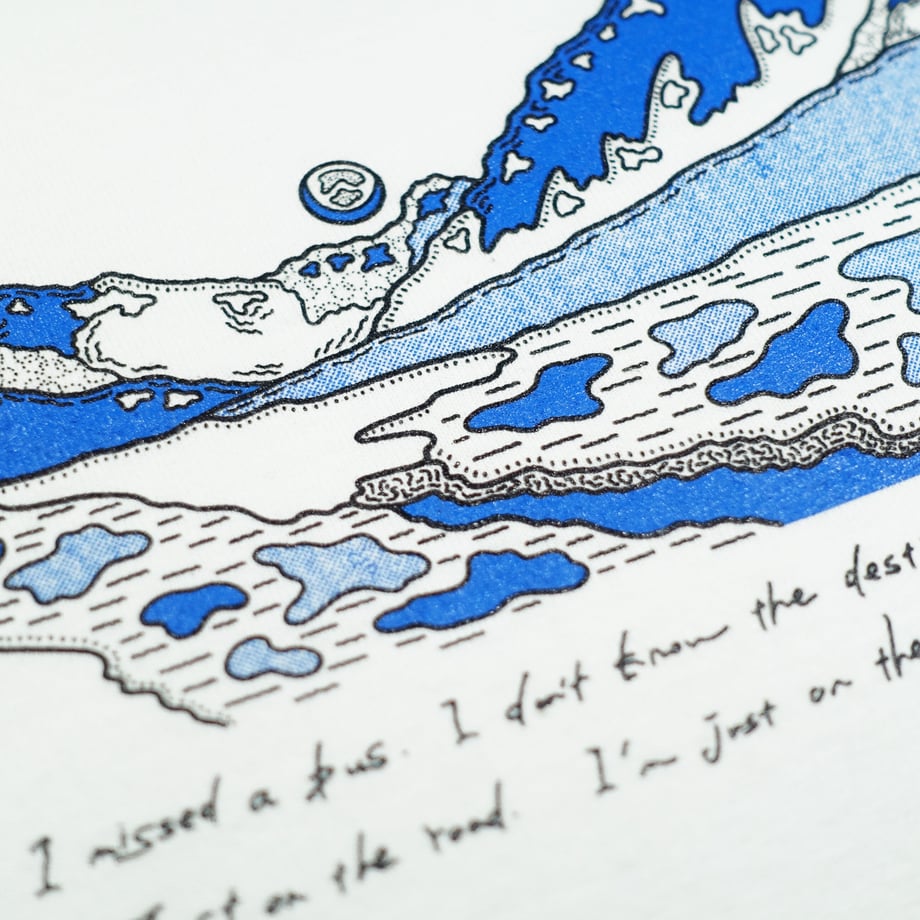 I missed a bus. I don't know the dest
I'm just on the
st on the road.